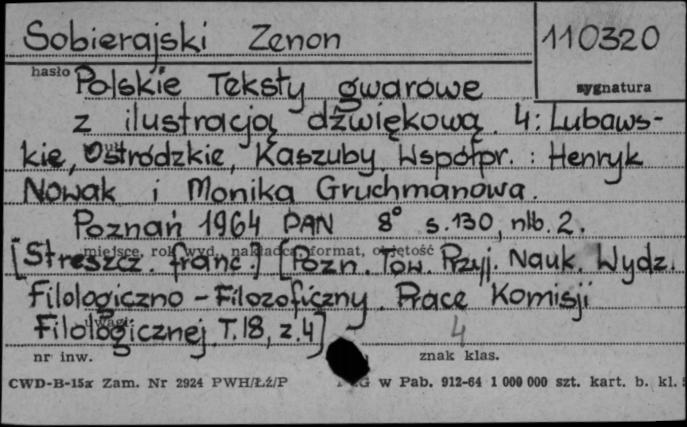 Sobierajski Zenon
110320
hasło
sygnatura
Polskie Teksty gwarowe
z ilustracją dźwiękową. 4: Lubaws-
kie, Ostródzkie, Kaszuby. Współpr. : Henryk
Nowak i Monika Gruchmanowa.
Poznań 1964 PAN 8° s. 130, nlb. 2.
miejsce, rok wyd., nakładca, format, objętość
[Streszcz. franc.] [Pozn. Tow. Przyj. Nauk. Wydz.
Filologiczno - Filozoficzny. Prace Komisji
uwagi
Filologicznej. T. 18, z. 4]
4
nr inw.
znak klas.
CWD-B-15x Zam. Nr 2924 PWH/Łź/P
G w Pab. 912-64 1 000 000 szt. kart. b. kl.